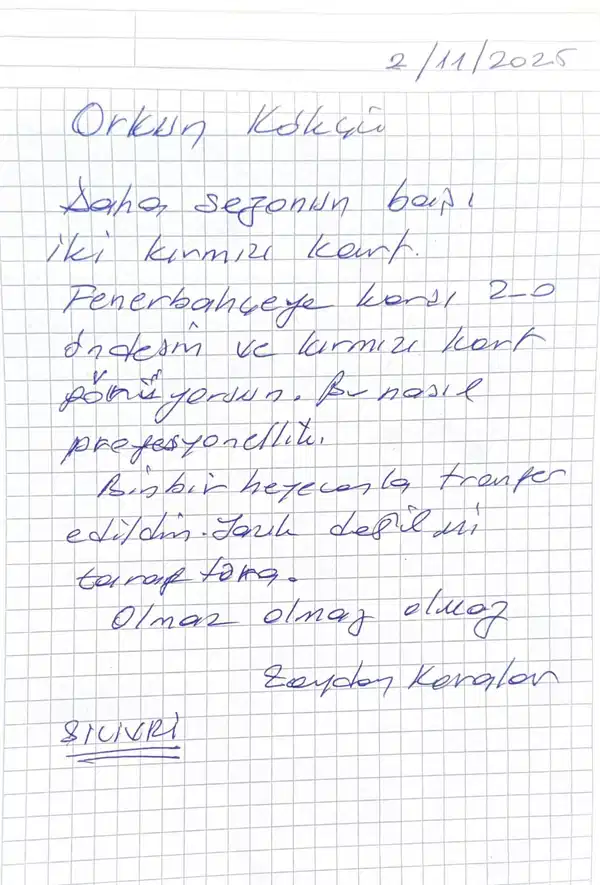 2/11/2025
Orkun Kökçü
Daha sezonun başı
iki kırmızı kart.
Fenerbahçeye karşı 2-0
öndesin ve kırmızı kart
görüyorsun. Bu nasıl
profesyonellik.
Binbir heyecanla tranfer
edildin. Yazık değil mi
taraftara.
Olmaz olmaz olmaz
Zeydan Karalar
SİLİVRİ